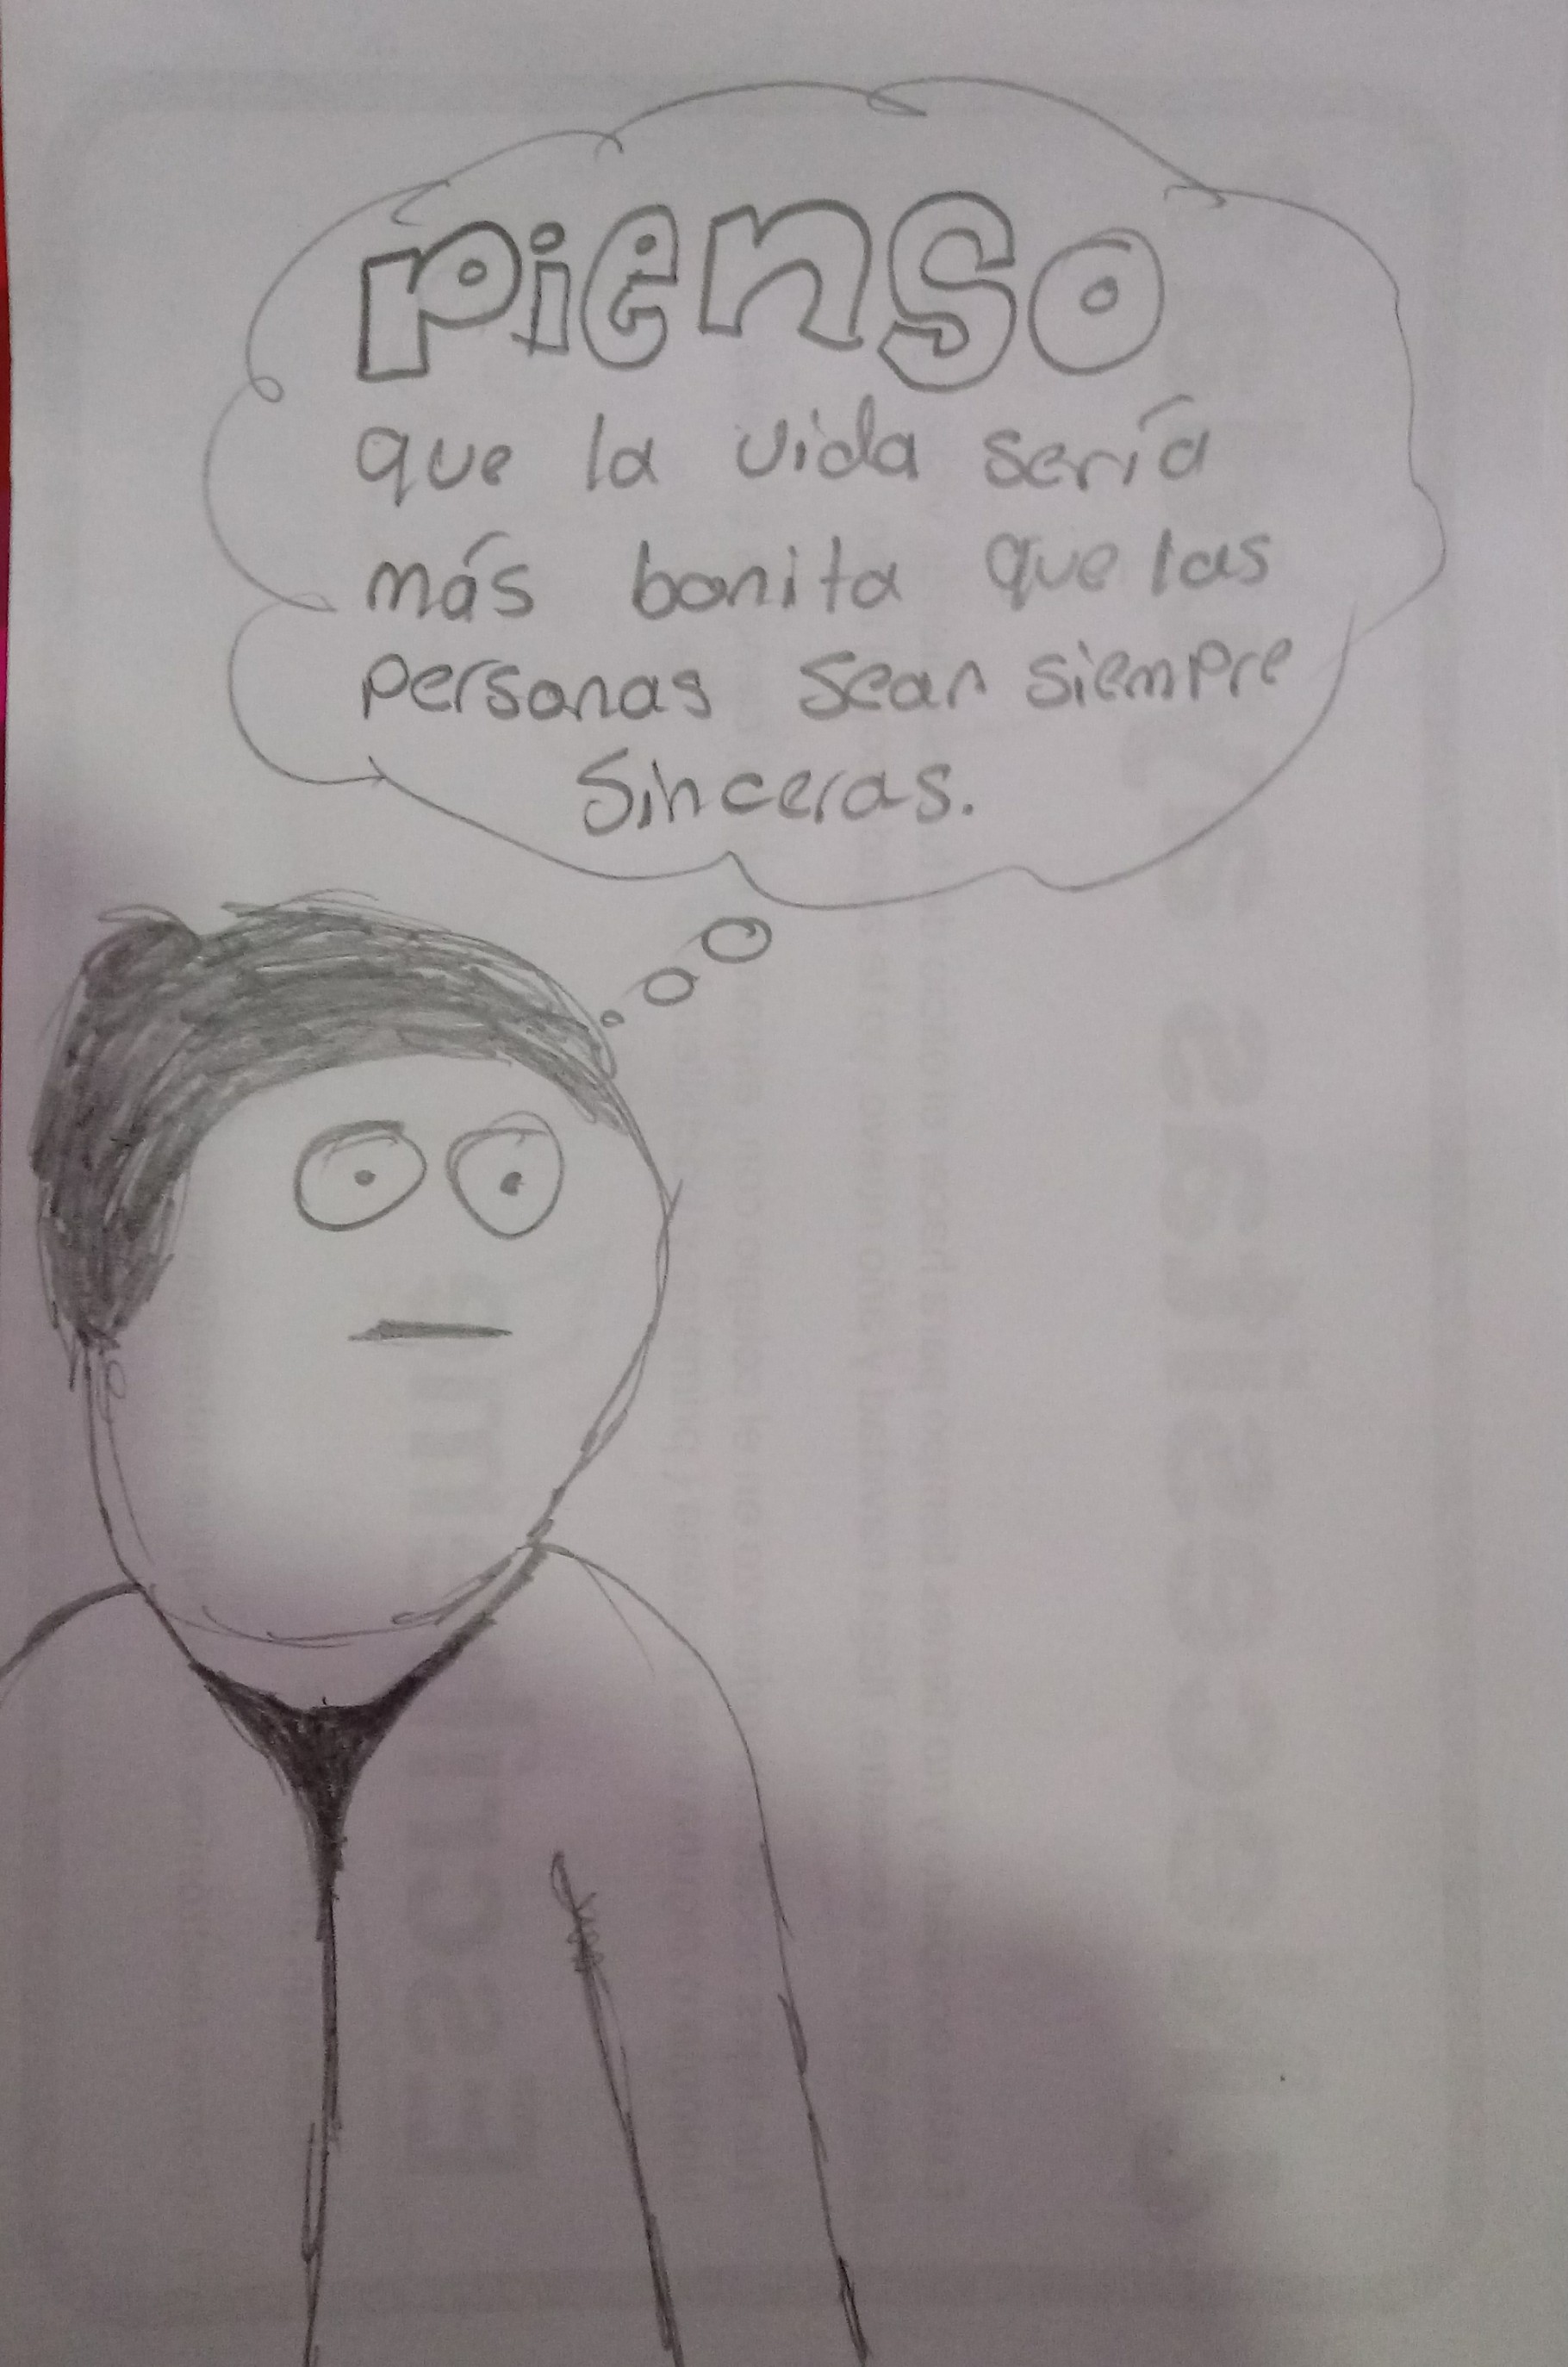 pienso
que la vida sería
más bonita que las
personas sean siempre
sinceras.